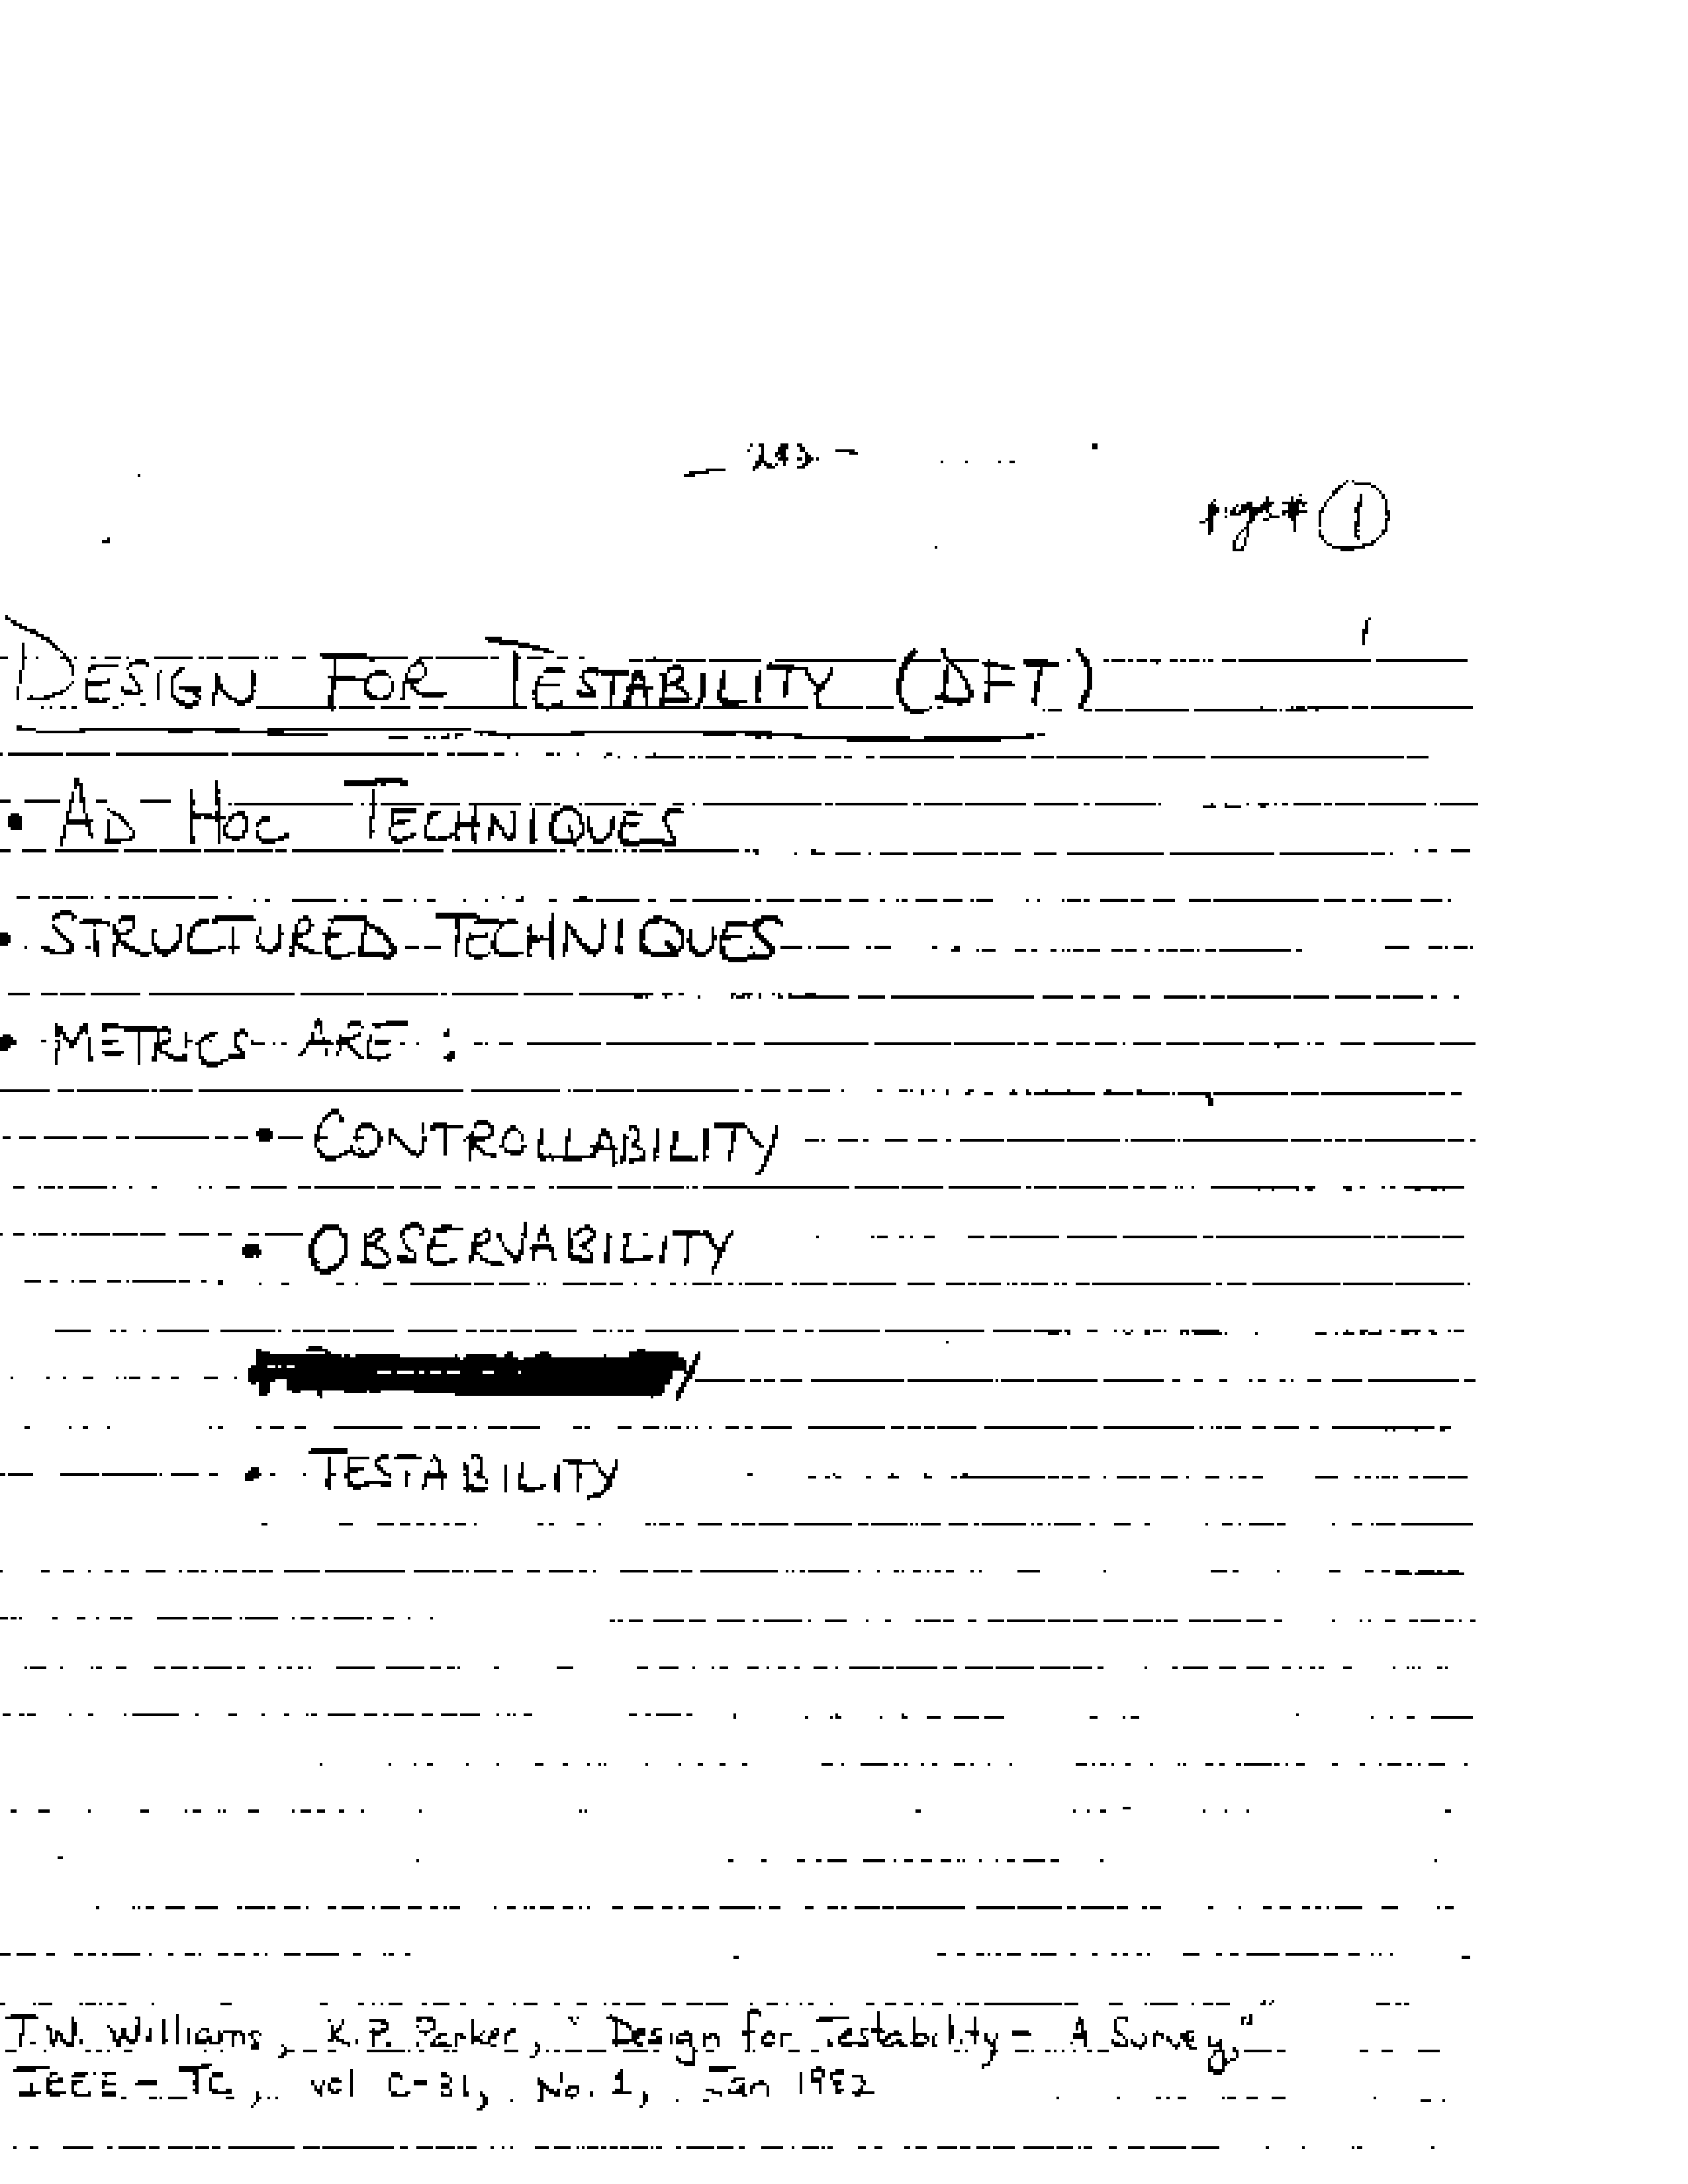 page # 1
DESIGN FOR TESTABILITY (DFT)
• AD HOC TECHNIQUES
• STRUCTURED TECHNIQUES
• METRICS ARE :
• CONTROLLABILITY
• OBSERVABILITY
• TESTABILITY
T.W. Williams, K.P. Parker, "Design for Testability - A Survey,"
IEEE-TC, vol C-31, No. 1, Jan 1982